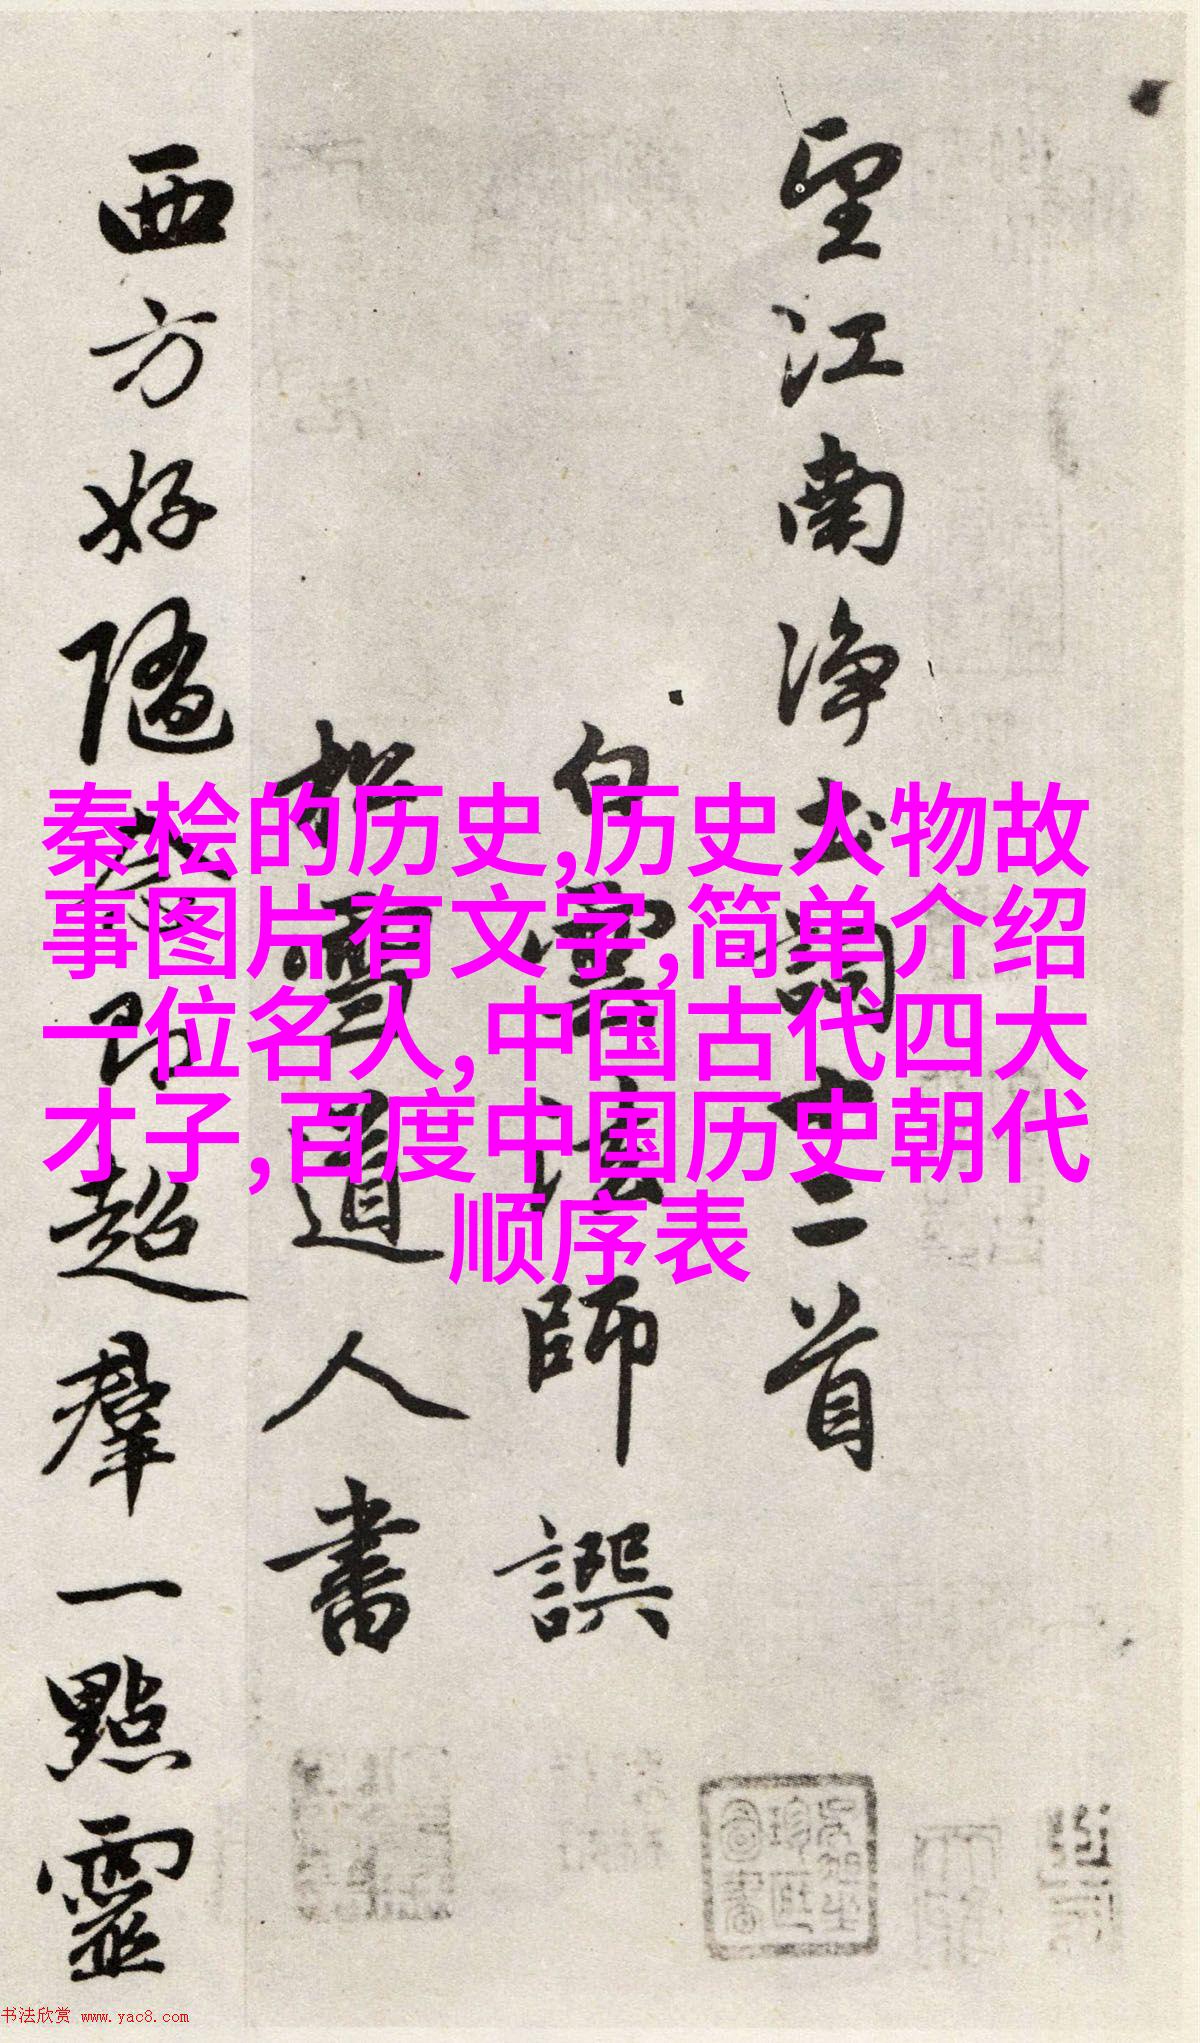 望江南淨土詞十二首
白雲法師譔
松雪道人書
西方好隨㘽即超羣一點靈
秦桧的历史,历史人物故
事图片有文字,简单介绍
一位名人,中国古代四大
才子,百度中国历史朝代
顺序表
书法欣赏 www.yac8.com